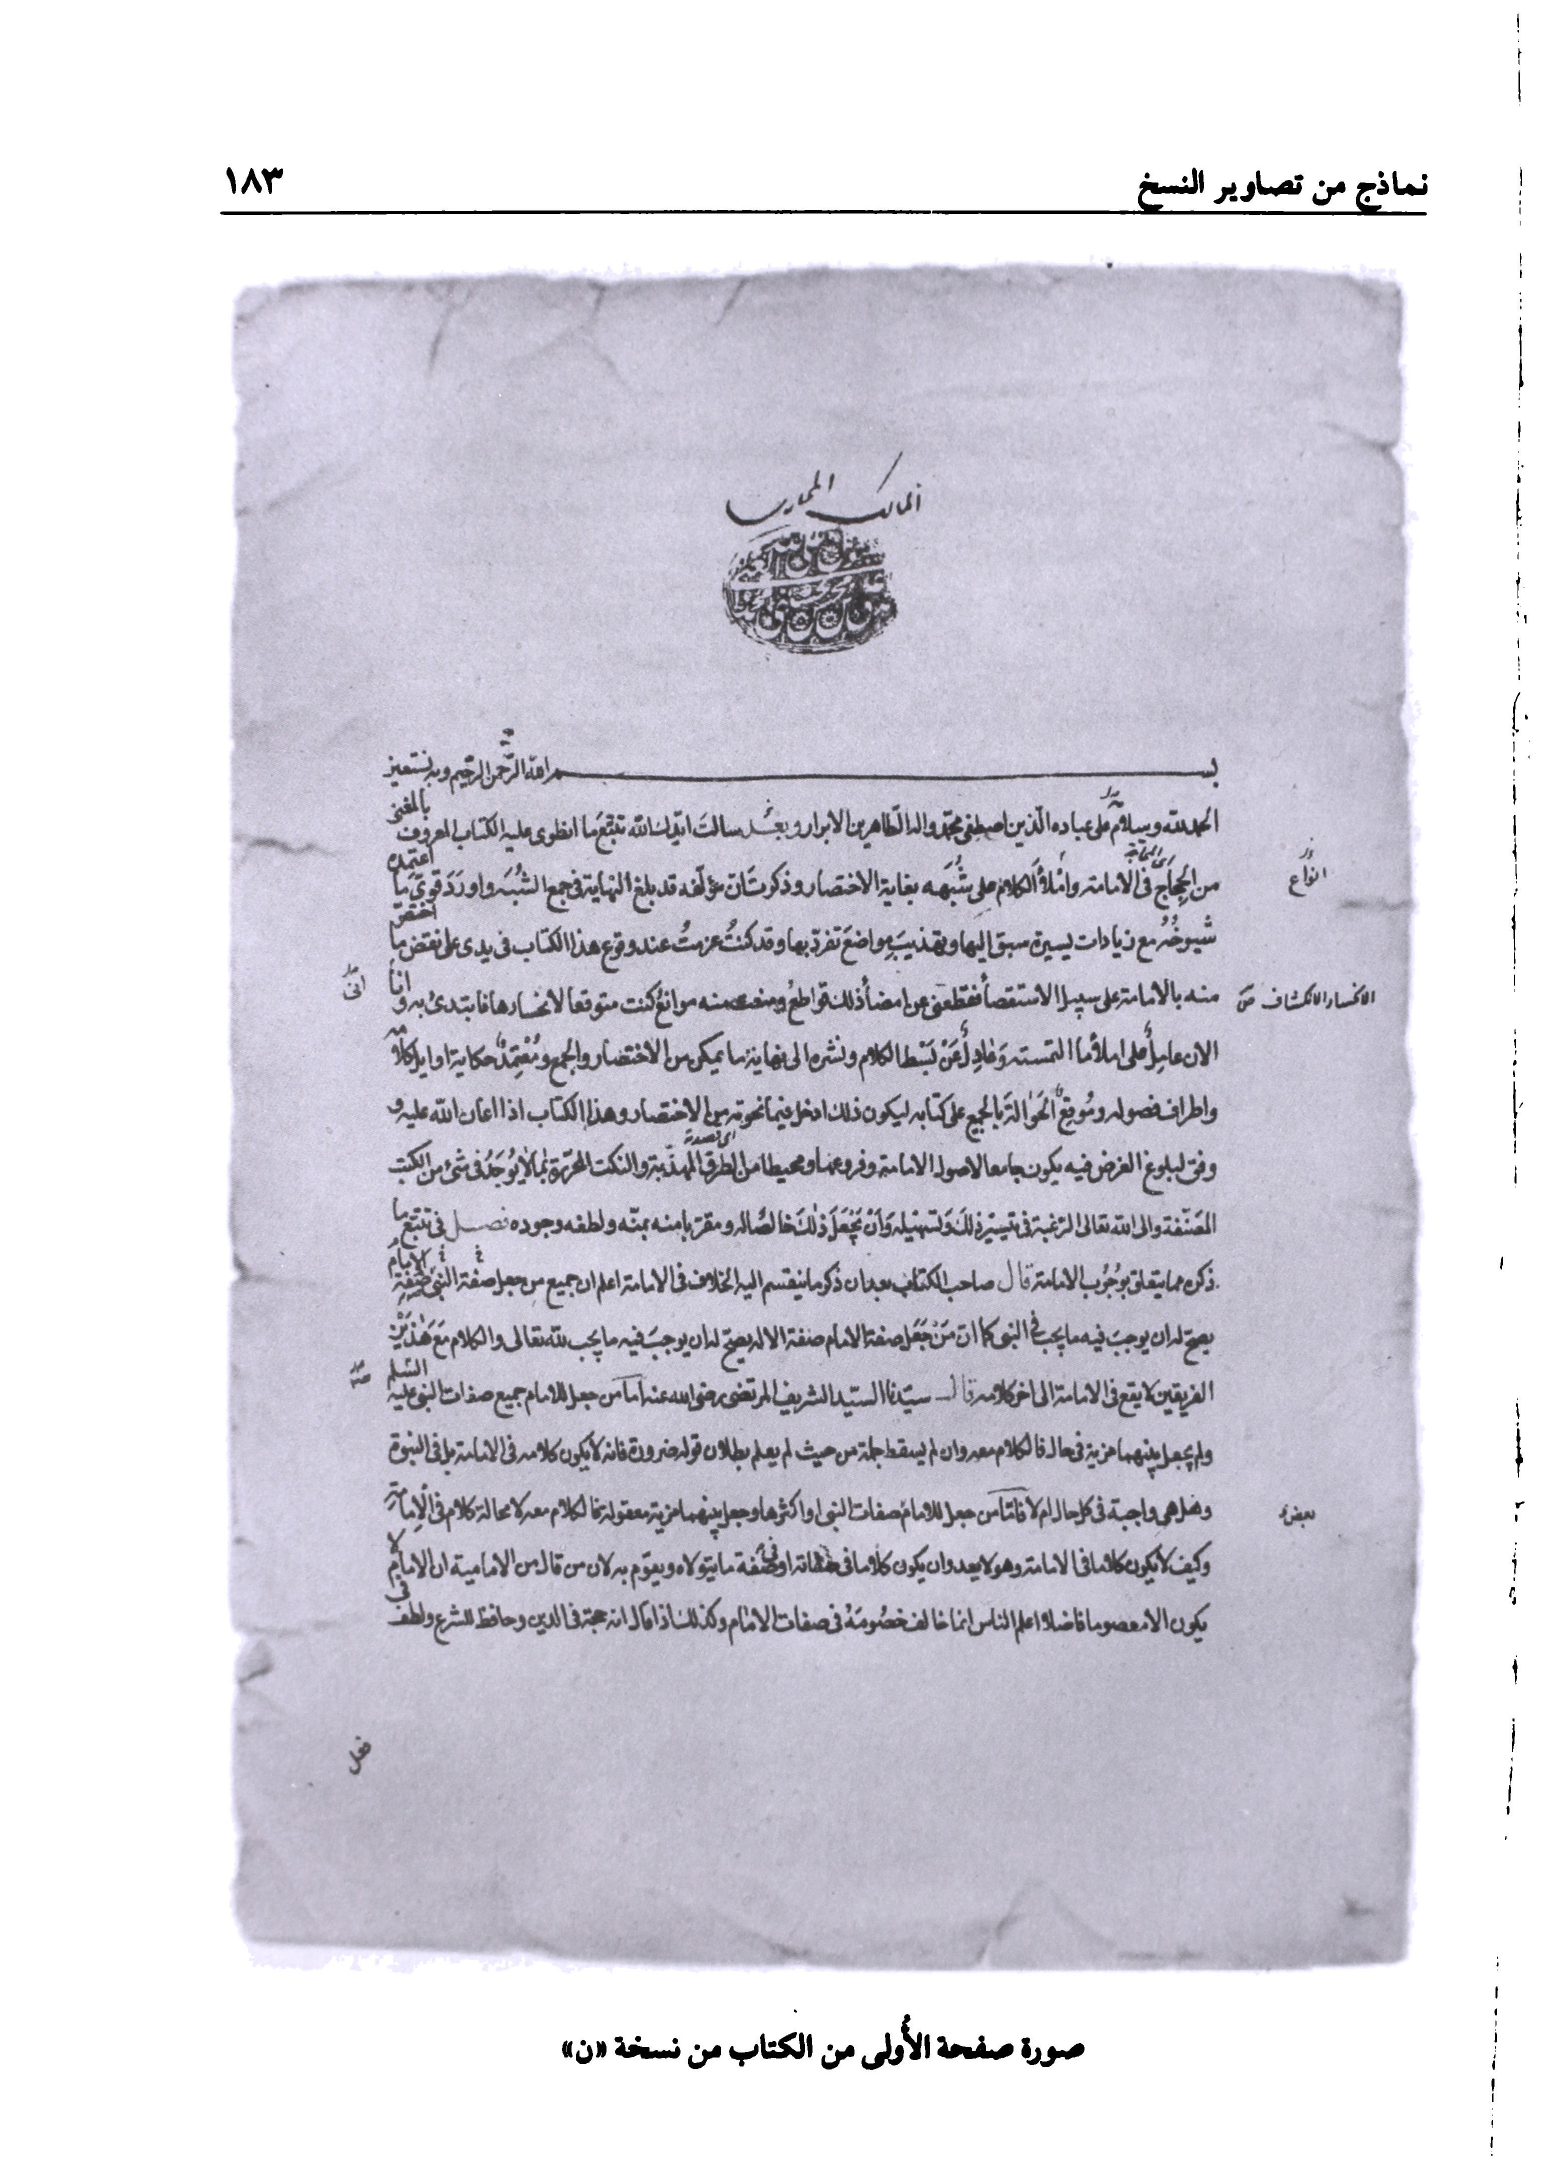 نماذج من تصاوير النسخ
١٨٣
بسم الله الرحمن الرحيم وبه نستعين
الحمد لله وسلام على عباده الذين اصطفى محمد واله الطاهرين الابرار وبعد سالت ايدك الله تتبع ما انطوى عليه الكتاب المعروف بالمغنى
من الحجاج فى الامامة واملأ الكلام على شبهه بغاية الاختصار وذكرت ان مؤلفه قد بلغ النهاية فى جمع الشبه واورد قوى ما اعتمده
شيوخه مع زيادات يسيرة سبق اليها وتهذيب مواضع تفرد بها وقد كنت عزمت عند وقوع هذا الكتاب فى يدى على نقض ما اختص
منه بالامامة على سبيل الاستقصأ فقطعنى عن امضأ ذلك قواطع ومنعت منه موانع كنت متوقعا لانحسارها فابتدئ به وانا
الان عامل على املأ ما التمسته وعادل عن بسط الكلام ونشره الى نهاية ما يمكن من الاختصار والجمع ومعتمد حكاية اوايل كلامه
واطراف فصوله وموقع الحوالة بالجميع على كتابه ليكون ذلك ادخل فيما نحوته من الاختصار وهذا الكتاب اذا اعان الله عليه و
وفق لبلوغ الغرض فيه يكون جامعا لاصول الامامة وفروعها ومحيطا من الطرق المهذبة والنكت المحررة بما لا يوجد فى شئ من الكتب
المصنفة والى الله تعالى الرغبة فى تيسير ذلك وتسهيله وان يجعل ذلك خالصا له ومقربا منه بمنه ولطفه وجوده فصل فى تتبع ما
ذكره مما يتعلق بوجوب الامامة قال صاحب الكتاب بعد ان ذكر ما ينقسم اليه الخلاف فى الامامة اعلم ان جميع من جعل صفة النبى صفة الامام
يصح له ان يوجب فيه ما يجب فى النبى كما ان من جعل صفة الامام صفة الاله يصح له ان يوجب فيه ما يجب لله تعالى والكلام مع هذين
الفريقين لا يقع فى الامامة الى اخر كلامه قال سيدنا السيد الشريف المرتضى رضى الله عنه اما من جعل للامام جميع صفات النبى عليه السلم
ولم يجعل بينهما مزية فى حال فالكلام معه وان لم يسقط جملة من حيث لم يعلم بطلان قوله ضرورة فانه لا يكون كلامه فى الامامة بل فى النبوة
وهل هى واجبة فى كل حال ام لا فاما من جعل للامام صفات النبى او اكثرها وجعل بينهما مزية معقولة فالكلام معه لا محالة كلام فى الامامة
وكيف لا يكون كلاما فى الامامة وهو لا يعدو ان يكون كلاما فى صفاته او فى صفة ما يتولاه ويقوم به لان من قال من الامامية ان الامام لا
يكون الا معصوما فاضلا اعلم الناس انما خالف خصومه فى صفات الامام وكذلك اذا قال انه حجة فى الدين وحافظ للشرع ولطف فى
انواع
الانحسار الانكشاف ص
بعض
فعل
صورة صفحة الأُولى من الكتاب من نسخة «ن»